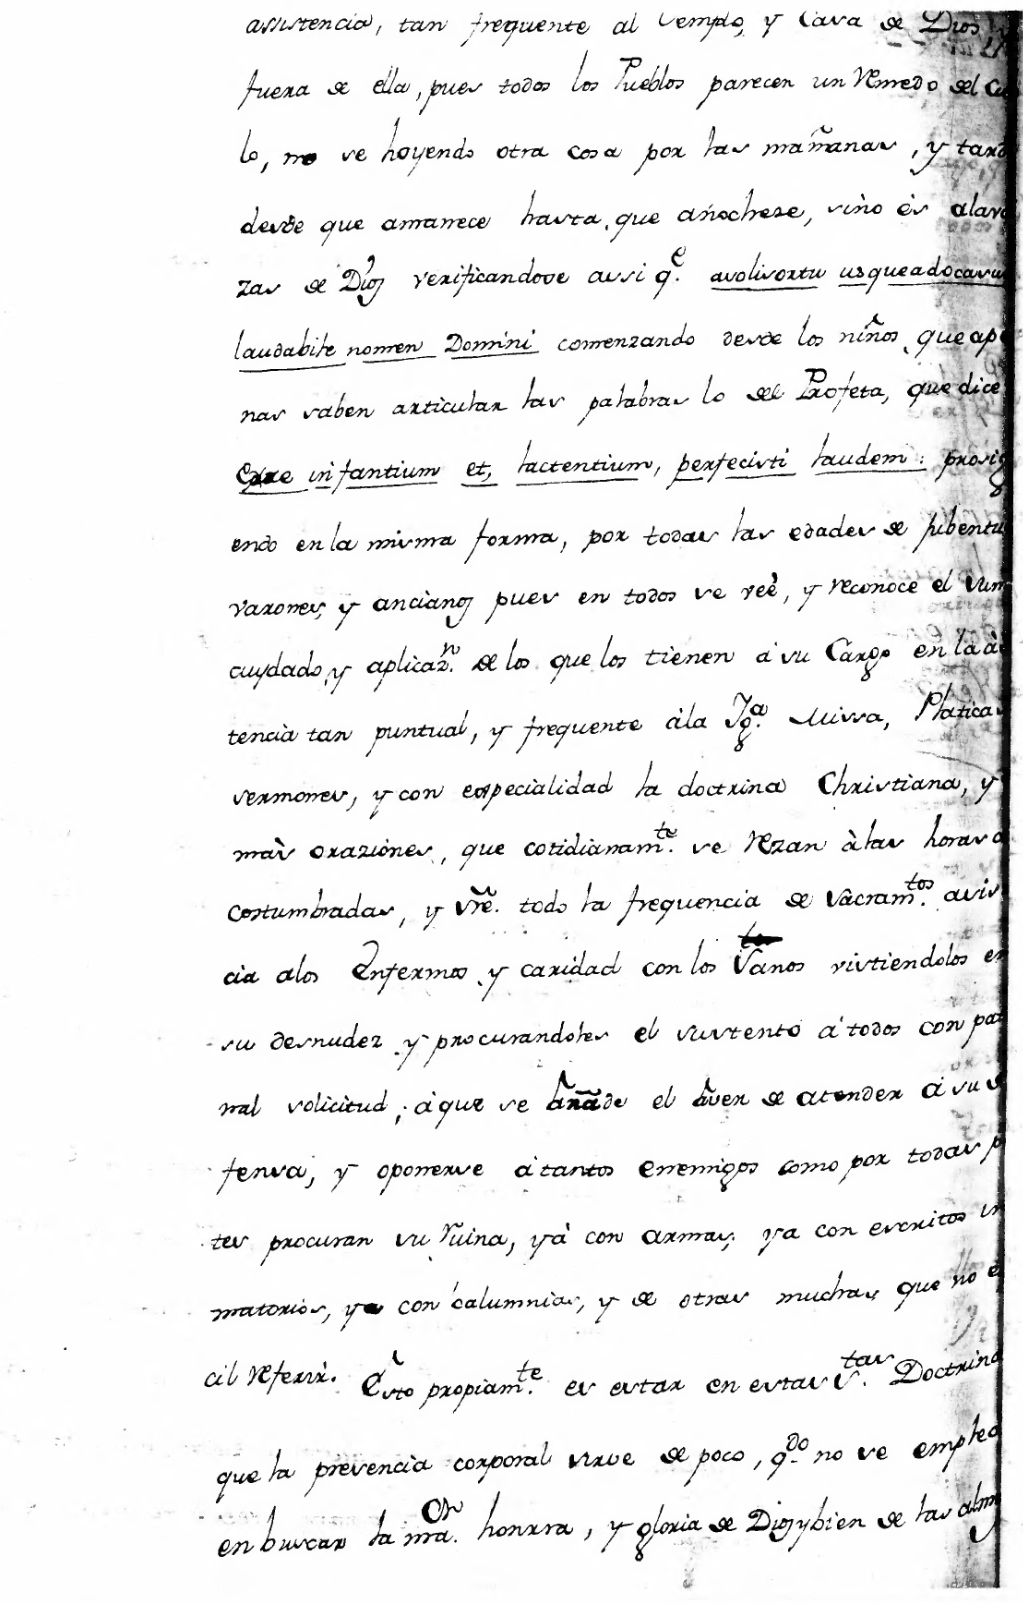 assistencia, tan frequente al Templo, y Casa de Dios
fuera de ella, pues todos los Pueblos parecen un Remedo del Cie
lo, no se hoyendo otra cosa por las mañanas, y tard
desde que amanece hasta, que anochese, sino es alava
zas de Dios verificandose assi q.e asolisortu usqueadocasu
laudabile nomen Domini comenzando desde los niños que ape
nas saben articular las palabras lo del Profeta, que dice
Exre infantium et, lactentium, perfecisti laudem: prosig
endo en la misma forma, por todas las edades de jubentu
varones, y ancianos pues en todos se veè, y reconoce el sum
cuydado, y aplicaz.n de los que los tienen a su Cargo en la à
tencia tan puntual, y frequente àla Yg.a Missa, Platicas
sermones, y con especialidad la doctrina Christiana, y
màs oraziones, que cotidianam.te se Rezan à las horas a
costumbradas, y sre. todo la frequencia de sacram.tos asis
cia alos Enfermos y caridad con los Sanos vistiendolos en
su desnudez y procurandoles el sustento à todos con pat
nal solicitud; à que se añade el àver de atender à su d
fensa, y oponerse à tantos enemigos como por todas p
tes procuran su Ruina, yà con armas, ya con escritos in
matorios, ya con calumnias, y de otras muchas que no e
cil referir. Esto propiam.te es estar en estas S.tas Doctrina
que la presencia corporal sirve de poco, q.do no se emplea
en buscar la mr.a honrra, y gloria de Dios y bien de las alm